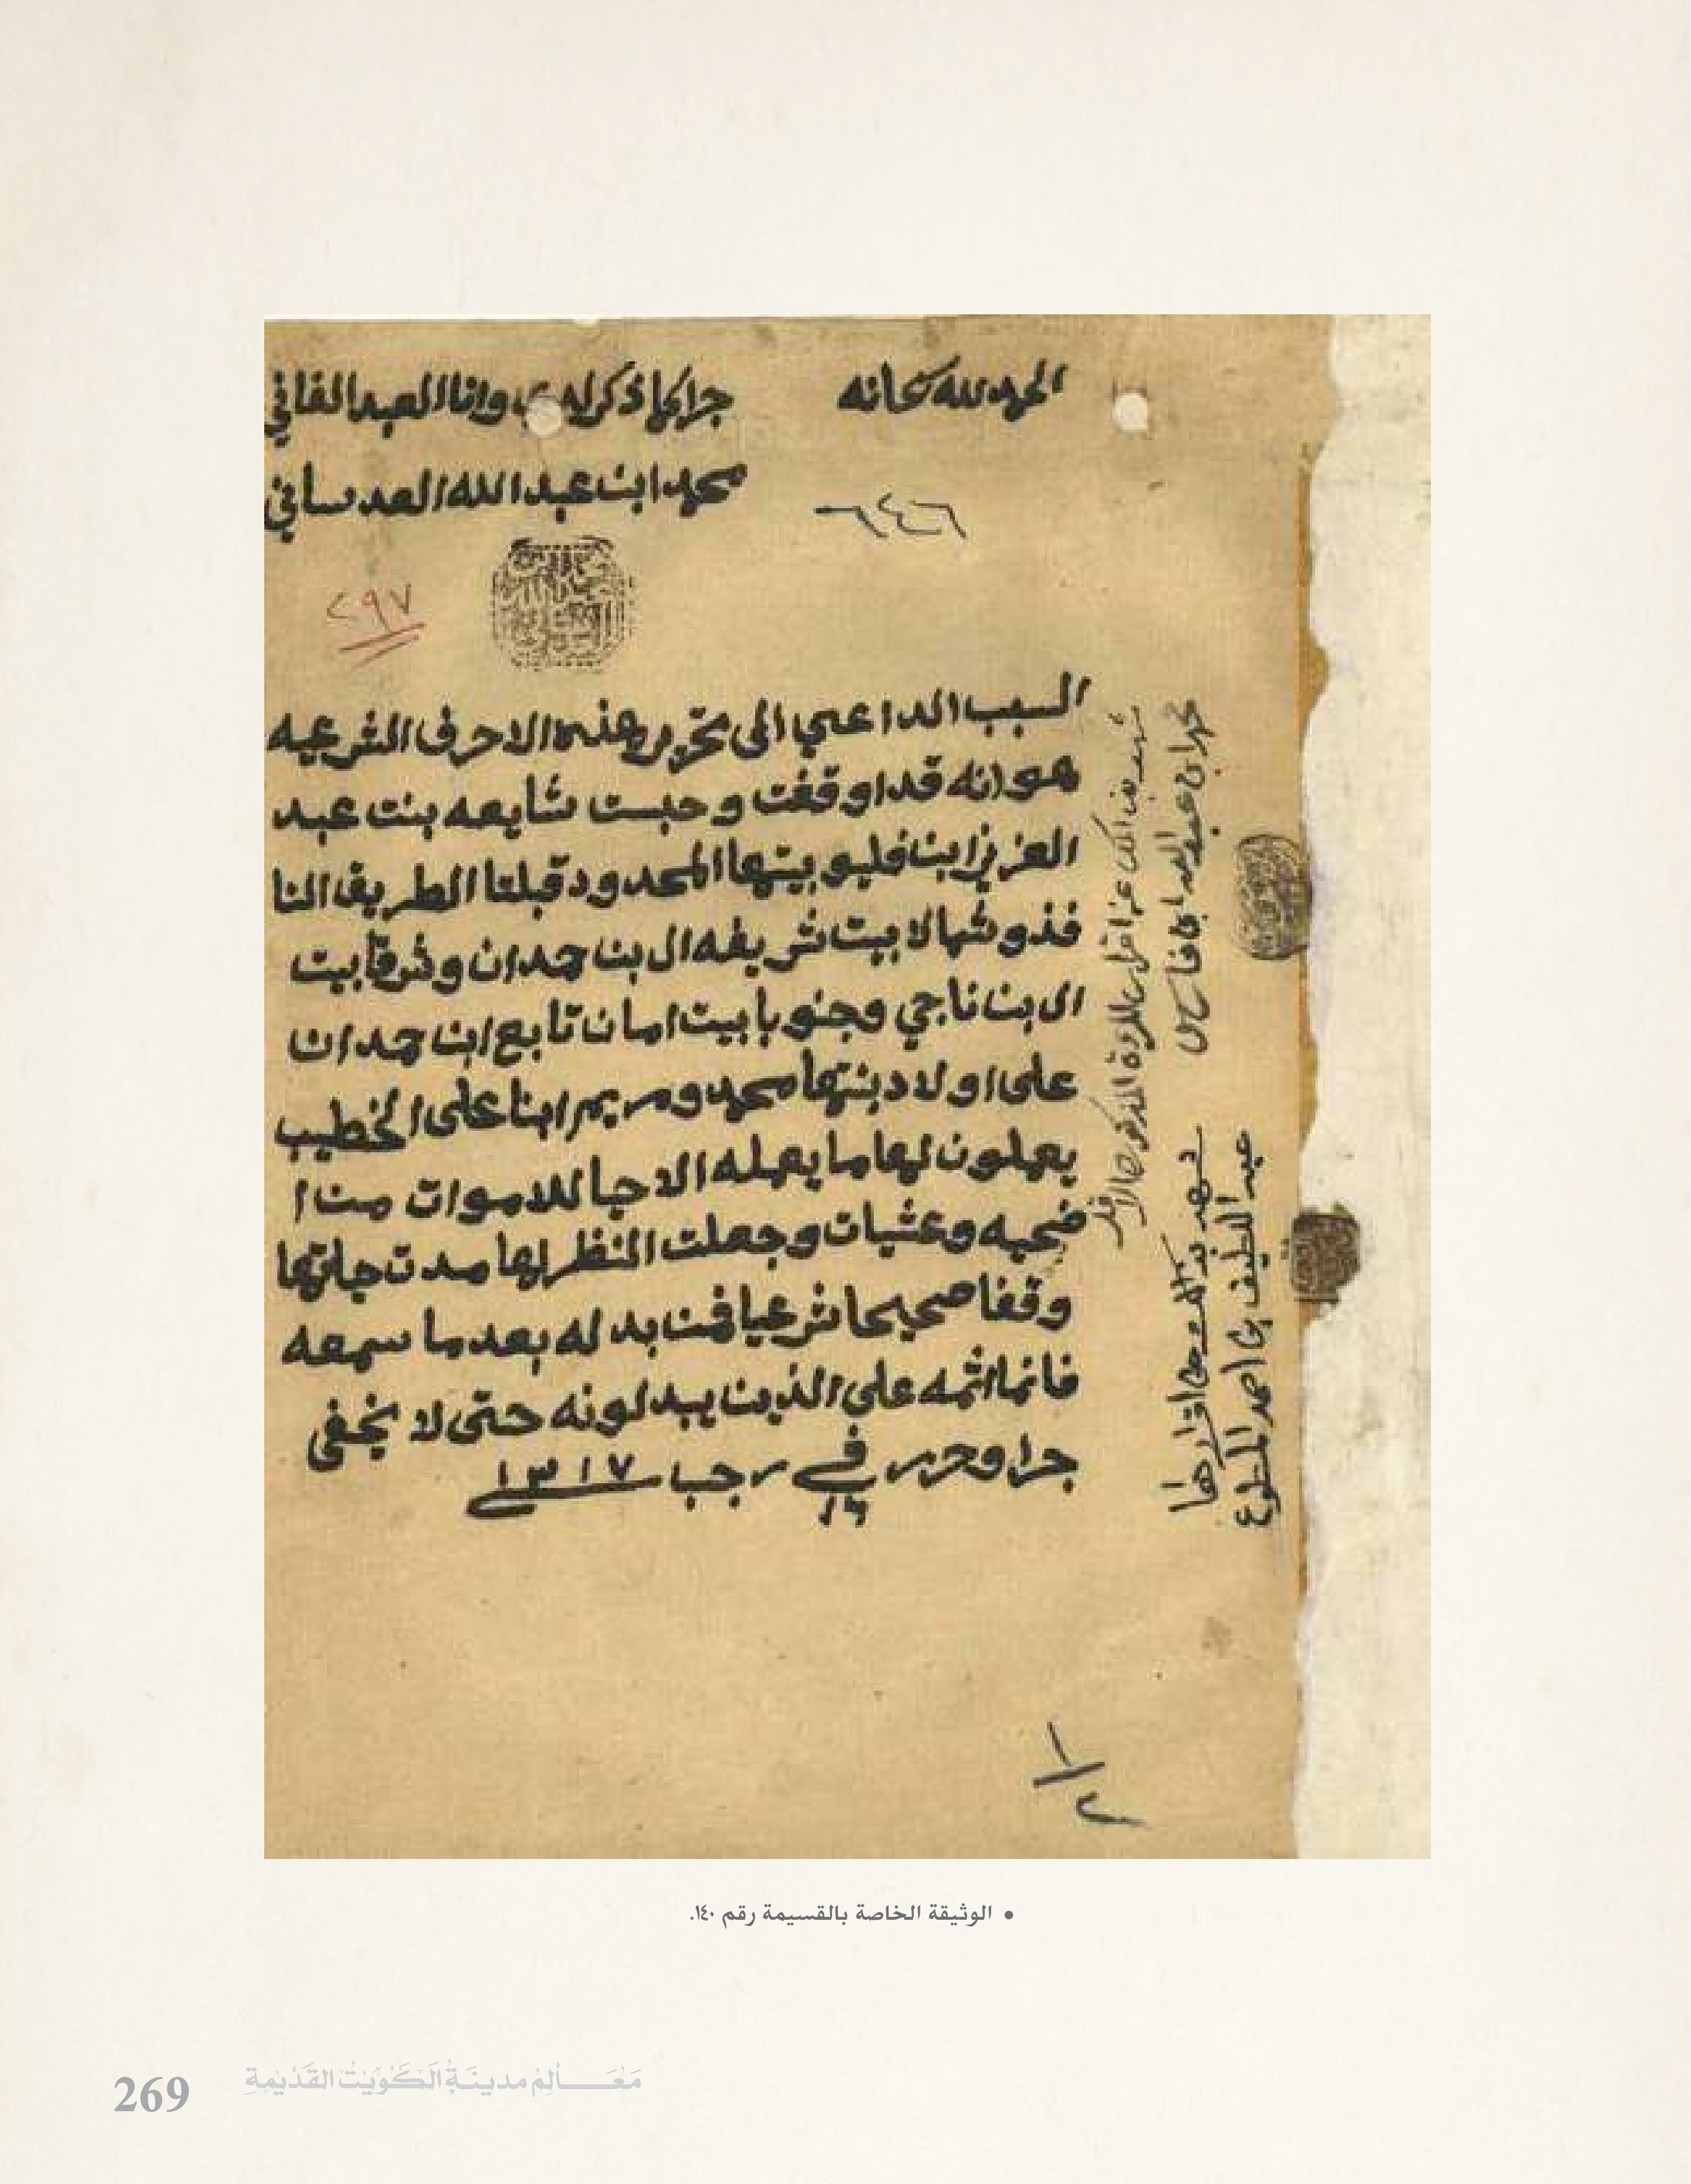 الحمد لله سبحانه
جرا كما ذكر لدي وانا العبد الفاني
محمد ابن عبدالله العدساني
٦٤٦
٢٩٧
السبب الداعي الى تحرير هذه الاحرف الشرعيه
هو انه قد اوقفت وحبست شايعه بنت عبد
العزيز ابن فليو بيتها المحدود قبلتا الطريق النا
فذ وشمالا بيت شريفه ال بن حمدان وشرقا بيت
ال بن ناجي وجنوبا بيت امان تابع ابن حمدان
على اولاد بنتها محمد ومريم ابنا على الخطيب
يعملون لها ما يعمله الاحيا للاموات من ا
ضحيه وعشيات وجعلت النظر لها مدت حياتها
وقفا صحيحا شرعيا فمن بدله بعد ما سمعه
فانما اثمه على الذين يبدلونه حتى لا يخفى
جرا وحرر في ١٦ رجب ١٣١٧
شهد بذلك
المذكورة
محمد ابن عبدالله ابن فارس
شهد بذلك على اقرارها
عبد اللطيف بن احمد المطوع
١/٢
• الوثيقة الخاصة بالقسيمة رقم ١٤٠.
مَعَالِم مدينَة الكُوَيت القَدْيمة
269